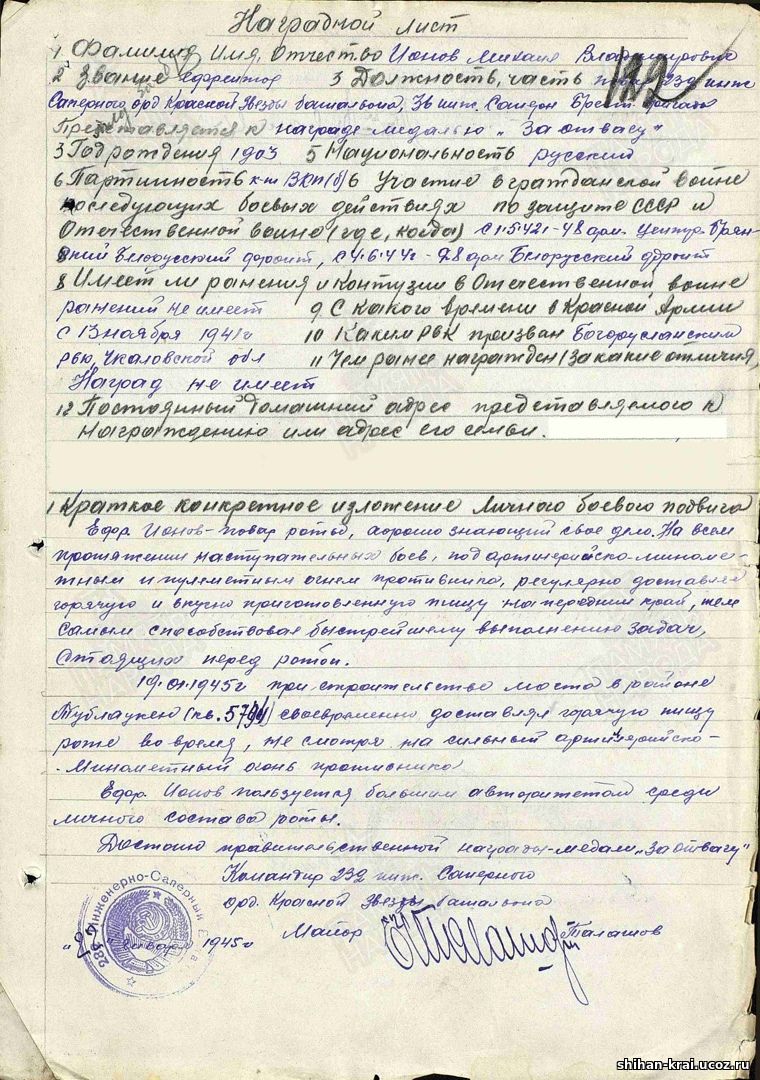 Наградной лист
1 Фамилия, Имя, Отчество Ионов Михаил Владимирович
2 Звание ефрейтор 3 Должность, часть повар 232 инж
Саперного орд Красной Звезды батальона, инж. Сапер
Представляется к награде-медалью „За отвагу"
3 Год рождения 1903 5 Национальность русский
6 Партийность к-т ВКП(б) 6 Участие в гражданской войне
последующих боевых действиях по защите СССР и
Отечественной войне (где, когда)
Белорусский фронт, Белорусский фронт
8 Имеет ли ранения и контузии в Отечественной войне
ранений не имеет 9 С какого времени в Красной Армии
с 13 ноября 1941г 10 Каким РВК призван Богорусланским
рвк, Чкаловской обл 11 Чем ранее награжден (за какие отличия,
Наград не имеет
12 Постоянный домашний адрес представляемого к
награждению или адрес его семьи.
1 Краткое конкретное изложение личного боевого подвига
Ефр. Ионов-повар роты, хорошо знающий свое дело. На всем
протяжении наступательных боев, под артиллерийско-миноме-
тным и пулеметным огнем противника, регулярно доставлял
горячую и вкусно приготовленную пищу на передний край, чем
самым способствовал быстрейшему выполнению задач,
стоящих перед ротой.
19.01.1945г при строительстве моста в районе
(кв. 5794) своевременно доставлял горячую пищу
роте во время, не смотря на сильный артиллерийско-
-минометный огонь противника
Ефр. Ионов пользуется большим авторитетом среди
личного состава роты.
Достоин правительственной награды-медали „За отвагу"
Командир 232 инж. Саперного
орд. Красной Звезды батальона
Майор Талашов
„27" января 1945г
Инженерно-Саперный
122
shihan-krai.ucoz.ru